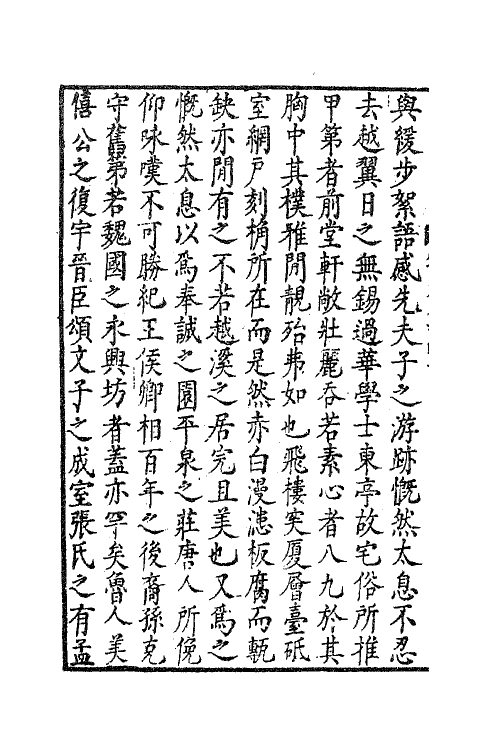 與緩步絮語感先夫子之游跡慨然太息不忍
去越翼日之無錫過華學士東亭故宅俗所推
甲第者前堂軒敞壯麗吞若素心者八九於其
胸中其樸雅閒靚殆弗如也飛樓突廈層臺砥
室網戶刻桷所在而是然赤白漫漶板腐而甎
缺亦閒有之不若越溪之居完且美也又爲之
慨然太息以爲奉誠之園平泉之莊唐人所俛
仰咏嘆不可勝紀王侯卿相百年之後裔孫克
守舊第若魏國之永興坊者蓋亦罕矣魯人美
僖公之復宇晉臣頌文子之成室張氏之有孟